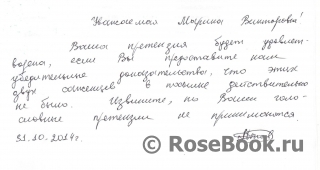 Уважаемая Марина Викторовна!
Ваша претензия будет удовлет-
ворена, если Вы предоставите нам
убедительные доказательства, что этих
двух саженцев в посылке действительно
не было. Извините, но Ваши голо-
словные претензии не принимаются.
31.10.2014г.
© www.RoseBook.ru